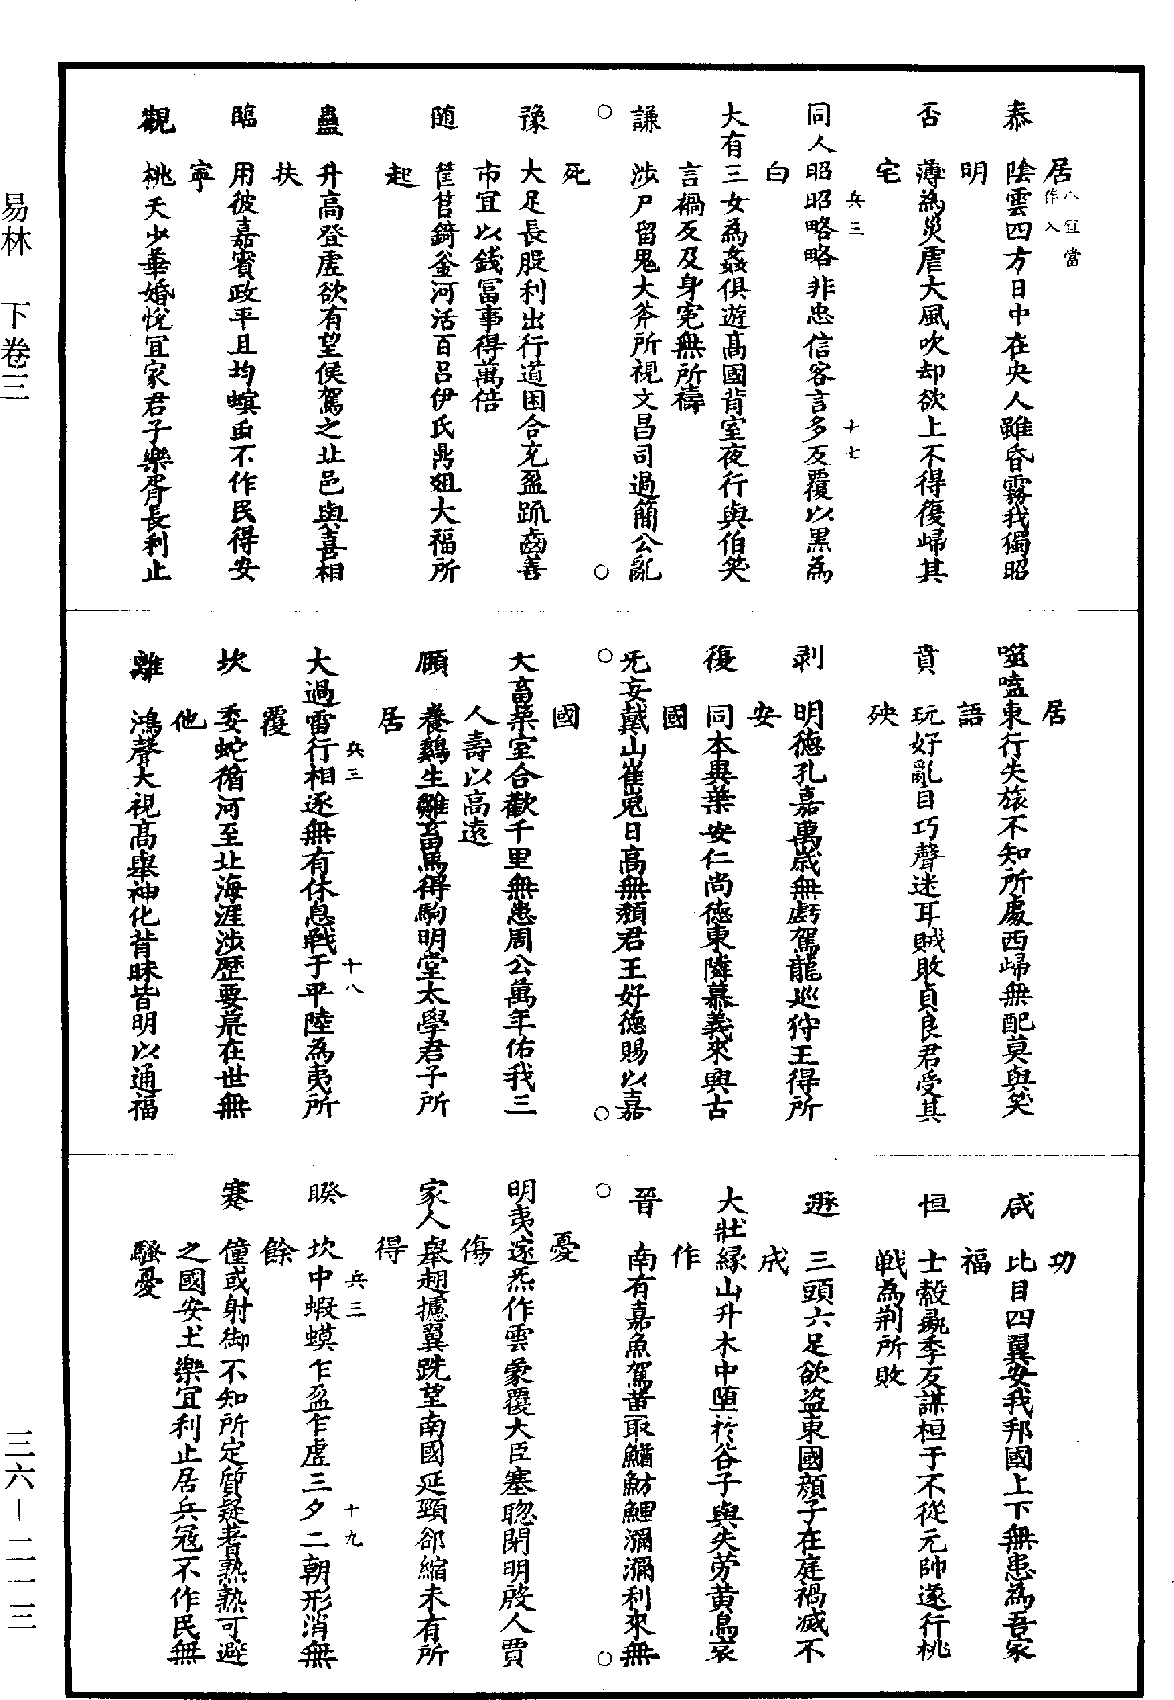 居八宜當作入
泰　陰雲四方日中在央人雖昏霧我獨昭
明
否　薄為災虐大風吹却欲上不得復歸其
宅
兵三　十七
同人昭昭略略非忠信客言多反覆以黑為
白
大有三女為姦俱遊高國背室夜行與伯笑
言禍反及身冤無所禱
謙　涉尸留鬼大斧所視文昌司過簡公亂
○　○
死
豫　大足長股利出行道困合充盈疏齒善
市宜以錢富事得萬倍
隨　筐筥錡釜河活百呂伊氏鼎俎大福所
起
蠱　升高登虛欲有望侯駕之北邑與喜相
扶
臨　用彼嘉賓政平且均螟虫不作民得安
寧
觀　桃夭少華婚悅宜家君子樂胥長利止
居
噬嗑東行失旅不知所處西歸無配莫與笑
語
賁　玩好亂目巧聲迷耳賊敗貞良君受其
殃
剥　明德孔嘉萬歲無虧駕龍巡狩王得所
安
復　同本異葉安仁尚德東隣慕義來興古
國
无妄戴山崔嵬日高無頹君王好德賜以嘉
○　○
國
大畜藥室合歡千里無患周公萬年佑我三
人壽以高遠
頤　養鷄生雛畜馬得駒明堂太學君子所
居
兵三　十八
大過雷行相逐無有休息戰于平陸為夷所
覆
坎　委蛇循河至北海涯涉歷要荒在世無
他
離　鴻聲大視高舉神化背昧皆明以通福
功
咸　比目四翼安我邦國上下無患為吾家
福
恒　士穀季反謀桓于不從元帥遂行桃
戰為荆所敗
遯　三頭六足欲盜東國顔子在庭禍滅不
成
大壯緣山升木中墮於谷子與失勞黃鳥哀
作
晉　南有嘉魚駕黃取鱃魴鯉瀰瀰利來無
○　○
憂
明夷遂炁作雲蒙覆大臣塞聰閉明殷人賈
傷
家人舉翅攄翼跣望南國延頸却縮未有所
得
兵三　十九
睽　坎中蝦蟆乍盈乍虛三夕二朝形消無
餘
蹇　僮或射御不知所定質疑蓍熟熟可避
之國安土樂宜利止居兵寇不作民無
騷憂
易林　下卷三　三六—二一三